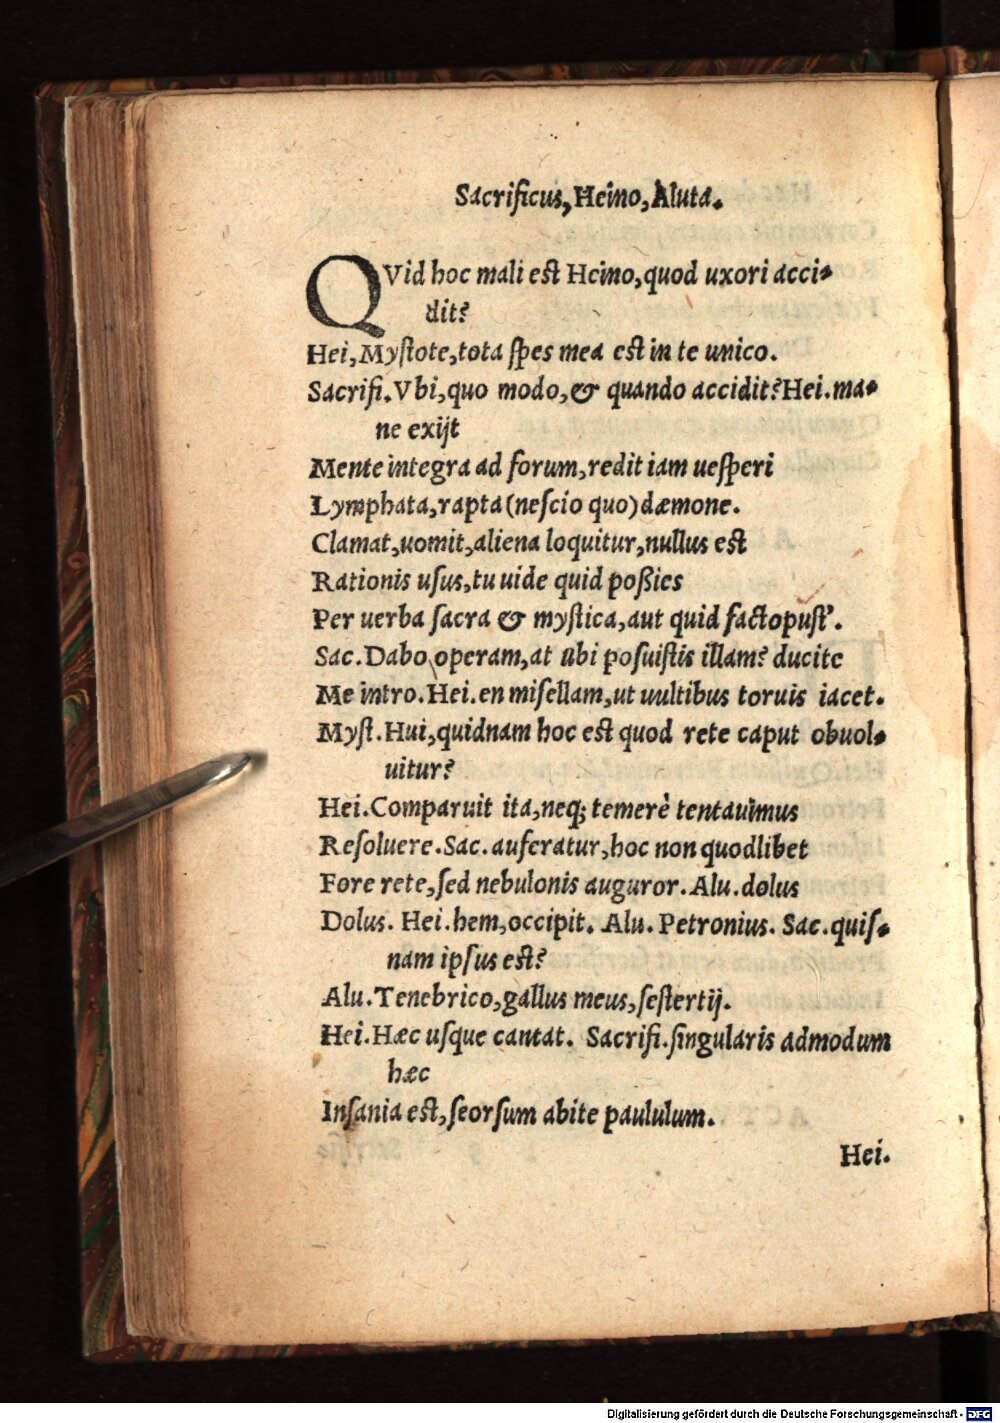 Sacrificus, Heino, Aluta.
QVid hoc mali est Heino, quod uxori acci-
dit?
Hei, Mystote, tota spes mea est in te unico.
Sacrifi. Vbi, quo modo, & quando accidit? Hei. ma-
ne exijt
Mente integra ad forum, redit iam uesperi
Lymphata, rapta (nescio quo) dæmone.
Clamat, uomit, aliena loquitur, nullus est
Rationis usus, tu uide quid poßies
Per uerba sacra & mystica, aut quid factopust'.
Sac. Dabo operam, at ubi posuistis illam? ducite
Me intro. Hei. en misellam, ut uultibus toruis iacet.
Myst. Hui, quidnam hoc est quod rete caput obuol-
uitur?
Hei. Comparuit ita, neq; temerè tentauimus
Resoluere. Sac. auferatur, hoc non quodlibet
Fore rete, sed nebulonis auguror. Alu. dolus
Dolus. Hei. hem, occipit. Alu. Petronius. Sac. quis-
nam ipsus est?
Alu. Tenebrico, gallus meus, sestertij.
Hei. Hæc usque cantat. Sacrifi. singularis admodum
hæc
Insania est, seorsum abite paululum.
Hei.
Digitalisierung gefördert durch die Deutsche Forschungsgemeinschaft - DFG